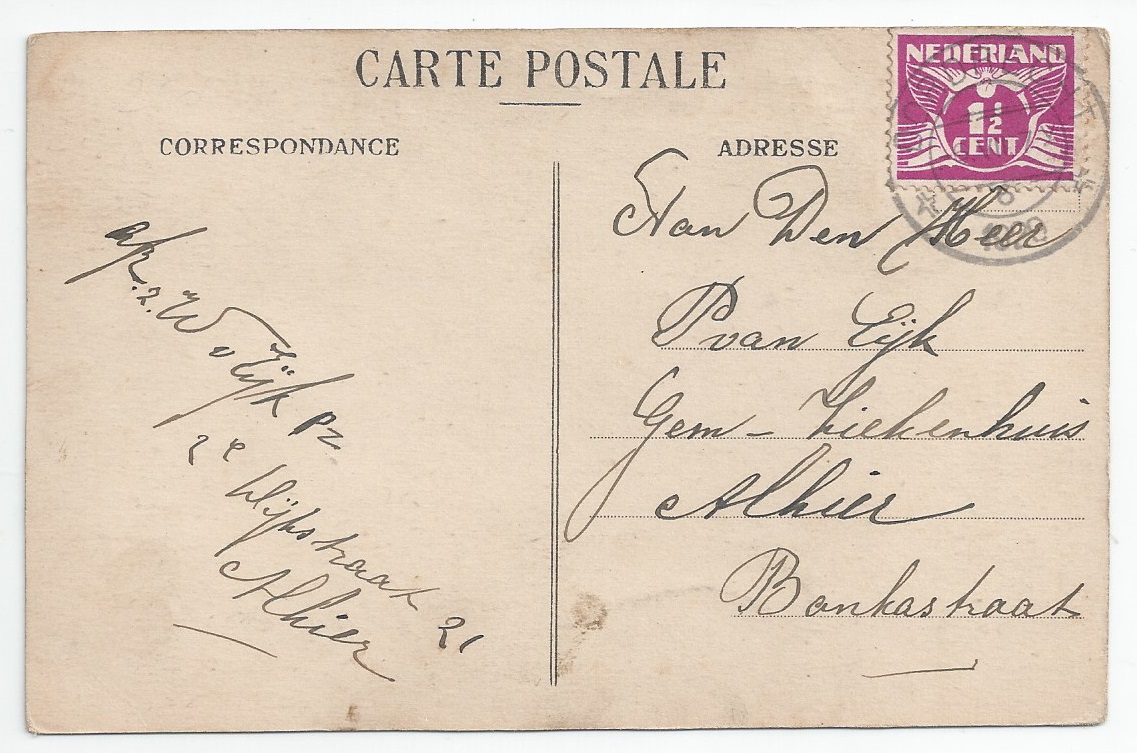 CARTE POSTALE
CORRESPONDANCE
ADRESSE
NEDERLAND
1½
CENT
Aan Den Heer
P van Eijk
Gem - Ziekenhuis
Alhier
Bankastraat
afz. W v Eijk Pz
2e
straat 21
Alhier